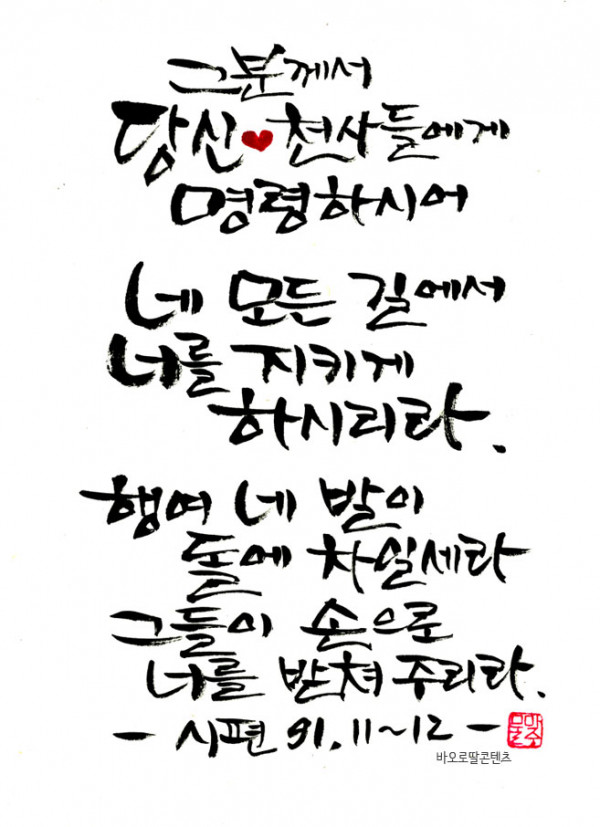 그분께서
당신♥천사들에게
명령하시어
네 모든 길에서
너를 지키게
하시리라.
행여 네 발이
돌에 차일세라
그들이 손으로
너를 받쳐 주리라.
- 시편 91.11~12 -
바오로딸콘텐츠